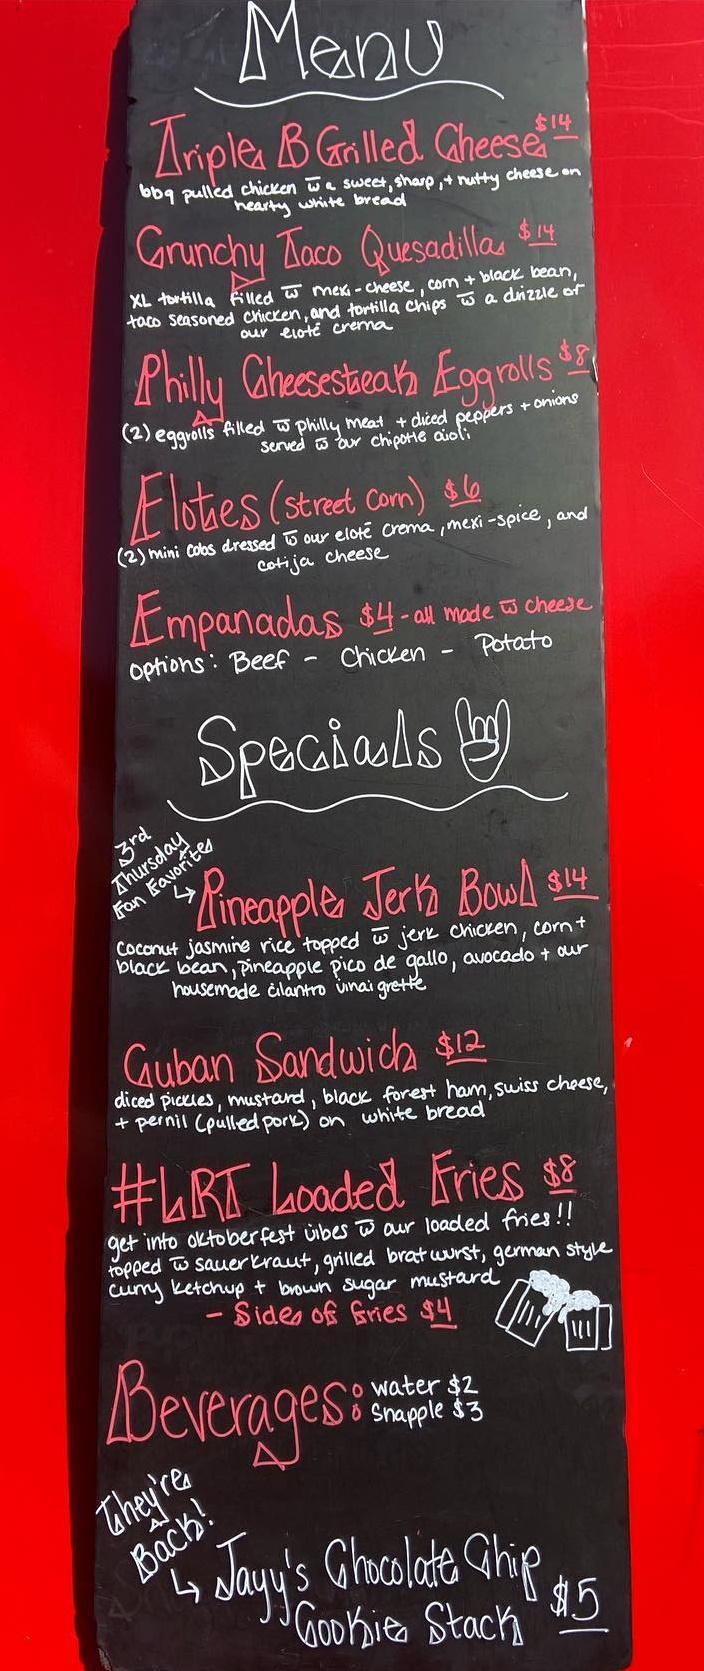 Menu
Triple B Grilled Cheese $14
bbq pulled chicken w̅ a sweet, sharp, + nutty cheese on
hearty white bread
Crunchy Taco Quesadilla $14
XL tortilla filled w̅ mexi-cheese, corn + black bean,
taco seasoned chicken, and tortilla chips w̅ a drizzle of
our eloté crema
Philly Cheesesteak Eggrolls $8
(2) eggrolls filled w̅ philly meat + diced peppers + onions
served w̅ our chipotle aioli
Elotes (street corn) $6
(2) mini cobs dressed w̅ our eloté crema, mexi-spice, and
cotija cheese
Empanadas $4 - all made w̅ cheese
options: Beef - Chicken - Potato
Specials
3rd
Thursday
Fan Favorites
Pineapple Jerk Bowl $14
coconut jasmine rice topped w̅ jerk chicken, corn +
black bean, pineapple pico de gallo, avocado + our
housemade cilantro vinaigrette
Cuban Sandwich $12
diced pickles, mustard, black forest ham, swiss cheese,
+ pernil (pulled pork) on white bread
#LRT Loaded Fries $8
get into oktoberfest vibes w̅ our loaded fries!!
topped w̅ sauerkraut, grilled bratwurst, german style
curry ketchup + brown sugar mustard
- Side of fries $4
Beverages: water $2
Snapple $3
They're
Back!
Jayy's Chocolate Chip
Cookie Stack $5